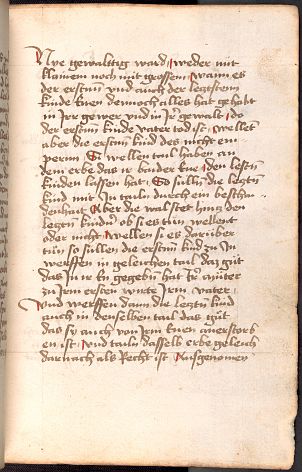 Nye gewaltig ward, weder mit
klainem noch mit grossem, wann es
der erstnn vnd auch der letzstenn
kinde Enen dennoch alles hat gehabt
in Irer gewer vnd in Ir gewalt, do
der erstnn kinde vater tod ist, wellet
aber die erstnn kind des nicht en
pernn, Si wellen tail haben an
dem erbe das ir baider Ene den letstn
kinden lassen hat, So sulln die letztn
kind mit In tailn durch ein beschai
denhait Aber die walstet hintz den
letztn kindn ob si es tun wellent
oder nicht, wellen si es darüber
tun so sullen die erstnn kind zu In
werffen in geleichen tail daz gut
das In ir En gegebn hat Ir muter
zu Irm ersten wirte Irm vater,
Vnd werffen dann die letztn kind
auch in denselben tail das gut
das sy auch von Irm Enen anerstorb
en ist, vnd tailn dasselb erbe geleich
darnach als Recht ist, Ausgenomen